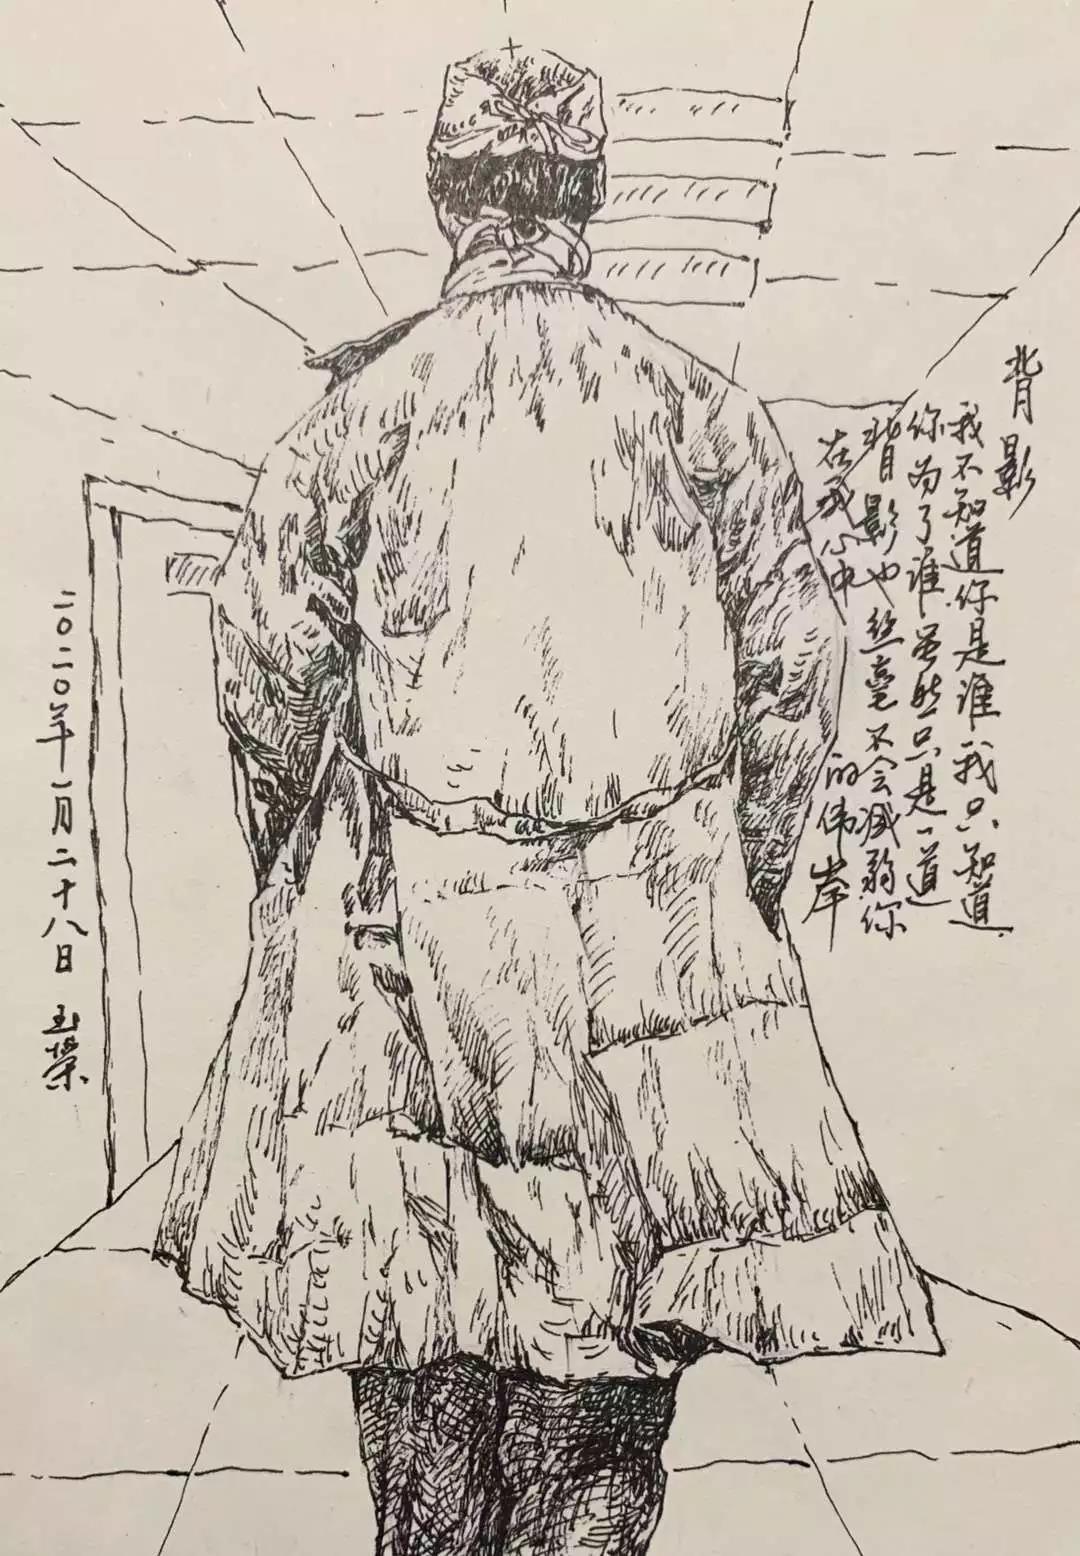 背影
我不知道你是谁我只知道
你为了谁虽然只是一道
背影也丝毫不会减弱你
在我心中的伟岸
二〇二〇年一月二十八日 玉荣